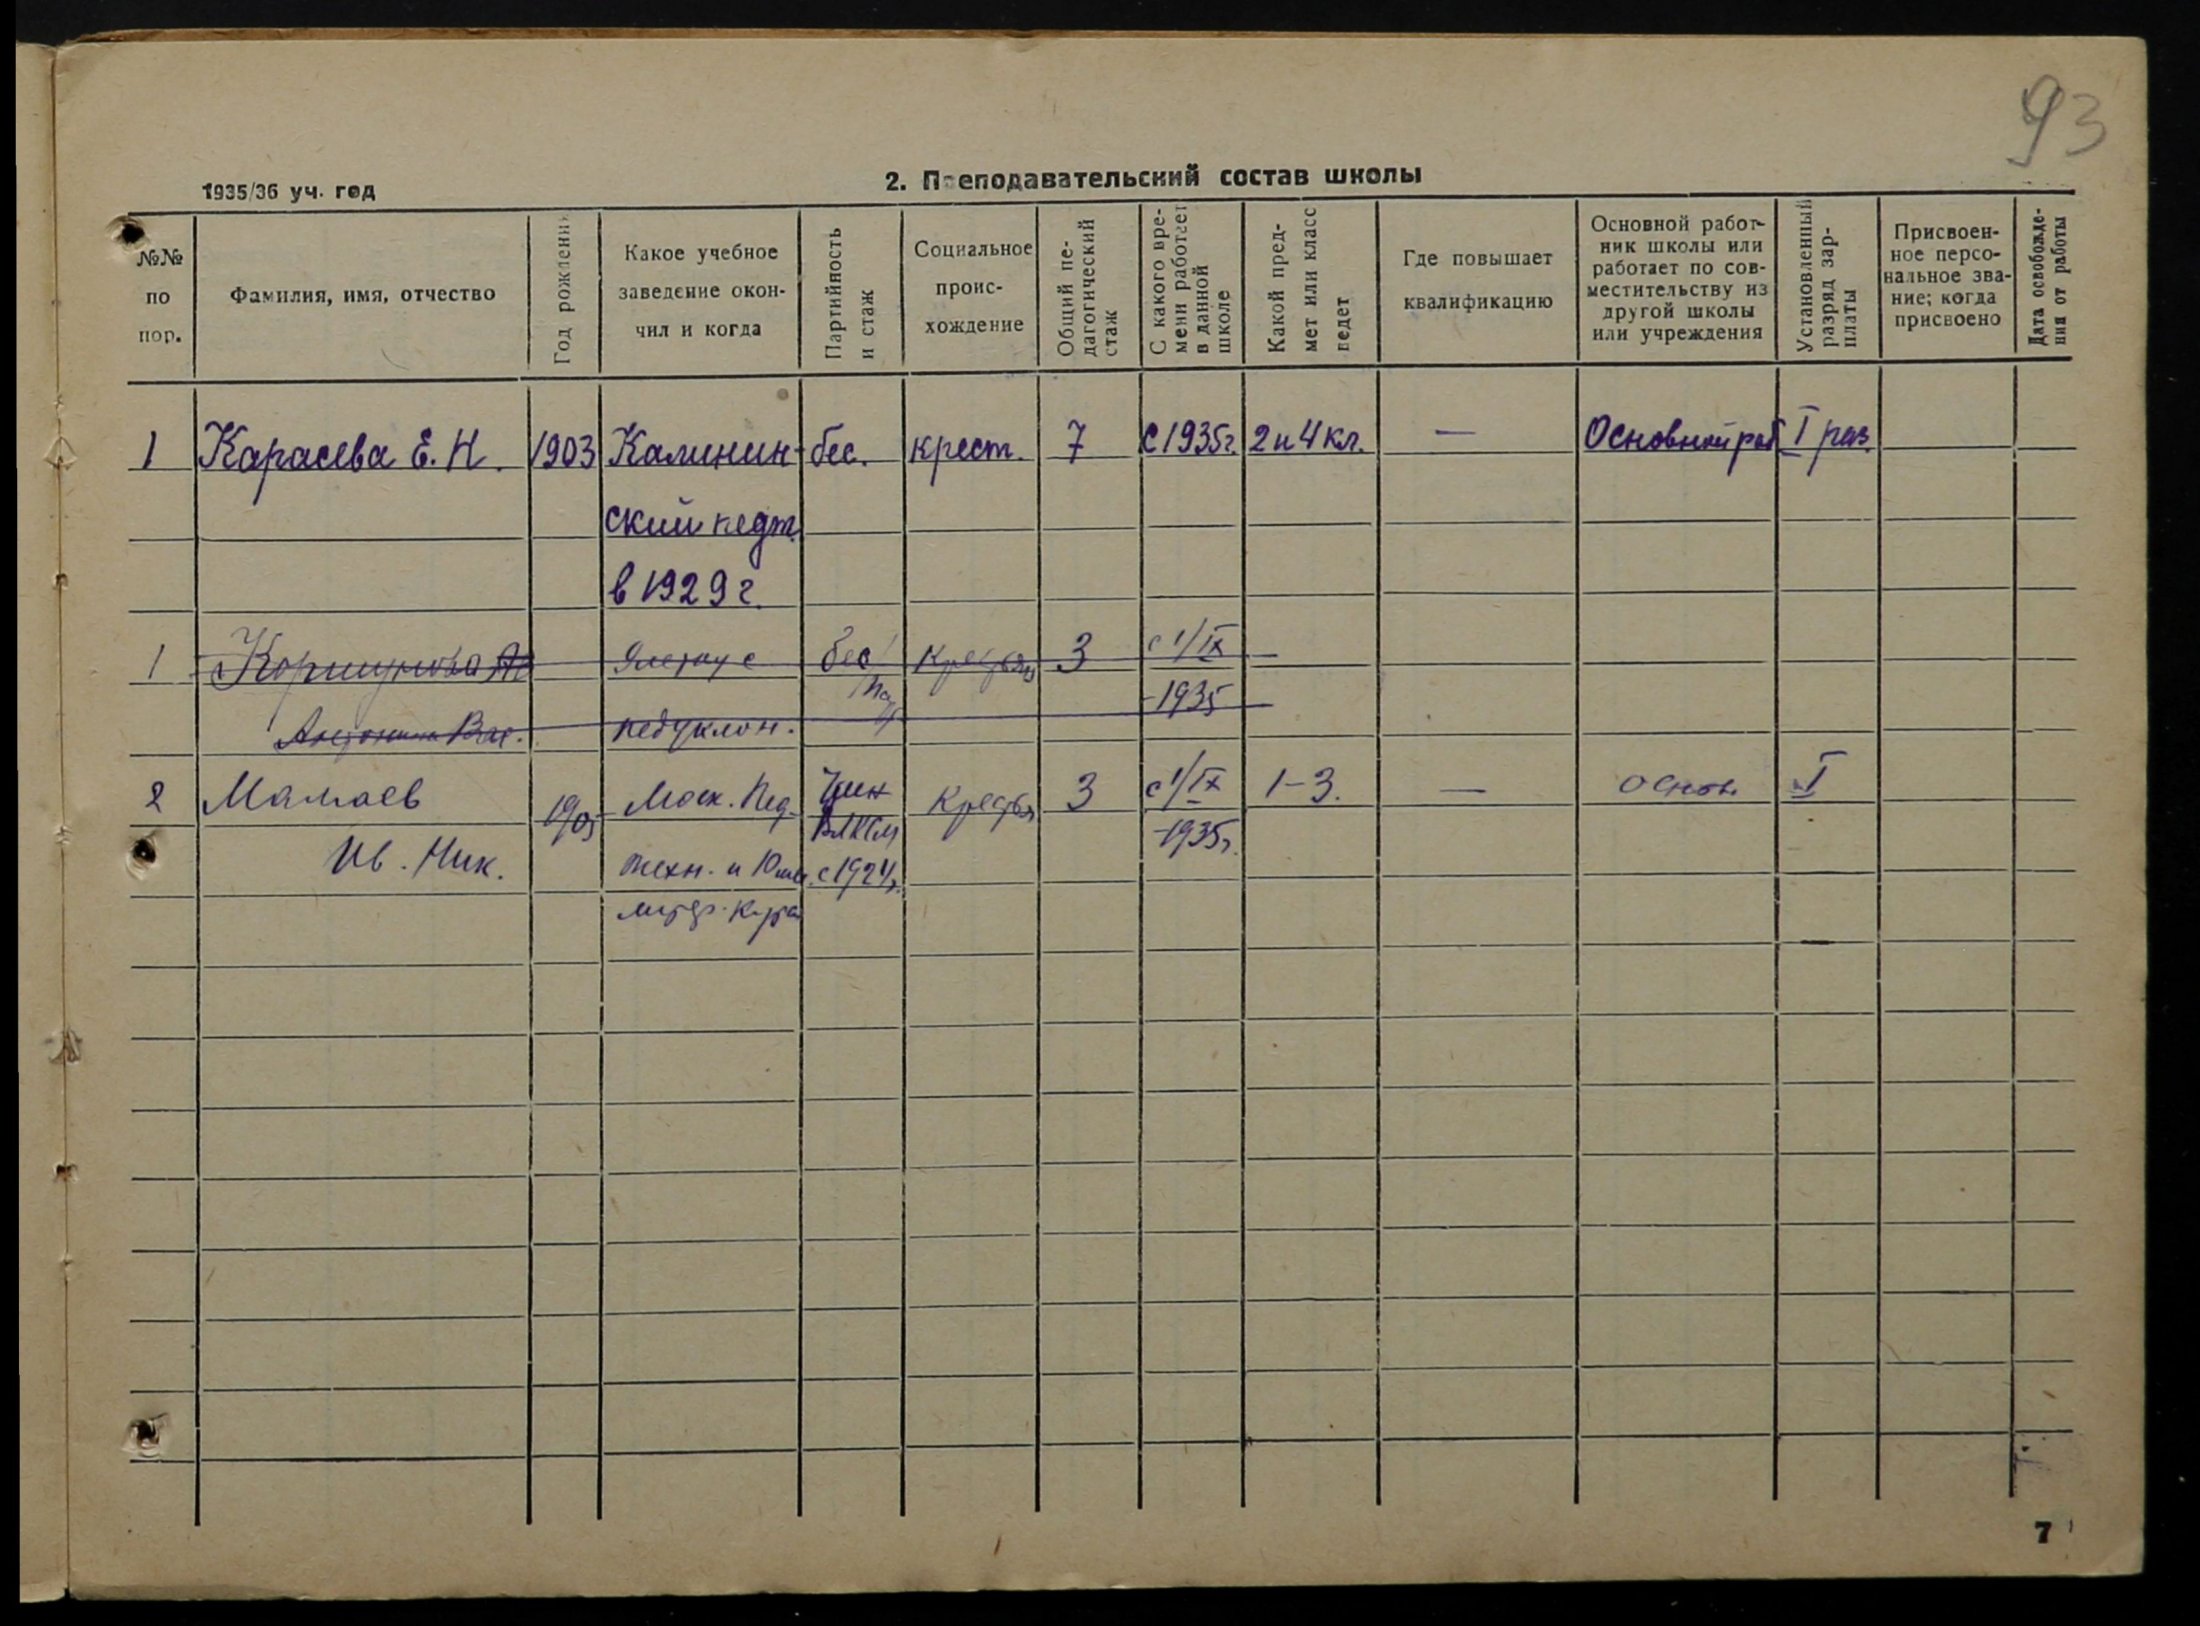 93
1935/36 уч. год
2. Преподавательский состав школы
№№ по пор.
Фамилия, имя, отчество
Год рождения
Какое учебное заведение окончил и когда
Партийность и стаж
Социальное происхождение
Общий педагогический стаж
С какого времени работает в данной школе
Какой предмет или класс ведет
Где повышает квалификацию
Основной работник школы или работает по совместительству из другой школы или учреждения
Установленный разряд зарплаты
Присвоенное персональное звание; когда присвоено
Дата освобождения от работы
1 Карасева Е. Н. 1903 Калинин- бес. крест. 7 с 1935г. 2 и 4 кл. — Основной раб I раз.
ский педт.
в 1929 г.
1 Коршунова бес Крестьян 3 с 1/IX
-1935
Антонина Вас. педуклон.
2 Мамаев 1905 Моск. Пед. Член Крестьян 3 с 1/IX 1-3. — основ. I
ВЛКСМ -1935г.
Ив. Ник. техн. и с 1924г.
7